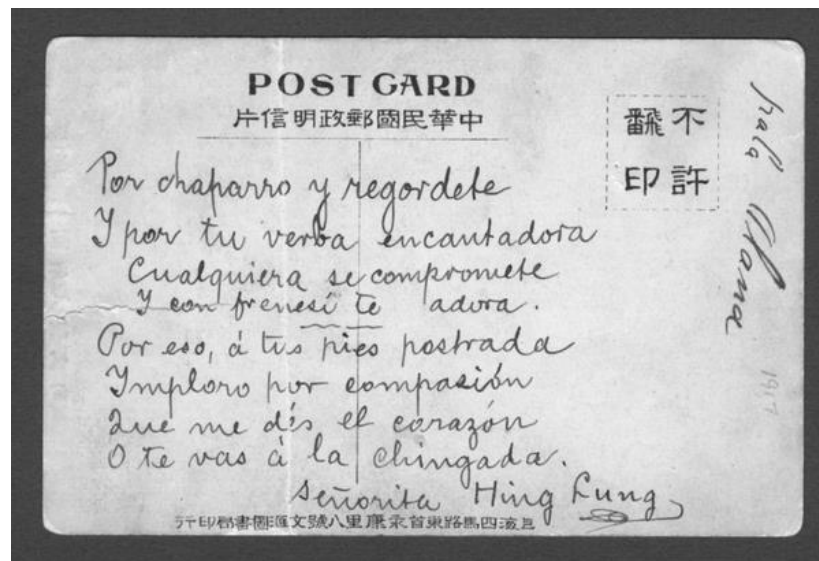 POST CARD
中華民國郵政明信片
不許
飜印
Por chaparro y regordete
Y por tu verba encantadora
Cualquiera se compromete
Y con frenesí te adora.
Por eso, á tus pies postrada
Ymploro por compasión
Que me dés el corazón
O te vas á la chingada.
Señorita Hing Lung
海四馬路東首永康里八號文匯圖書局印行
1917